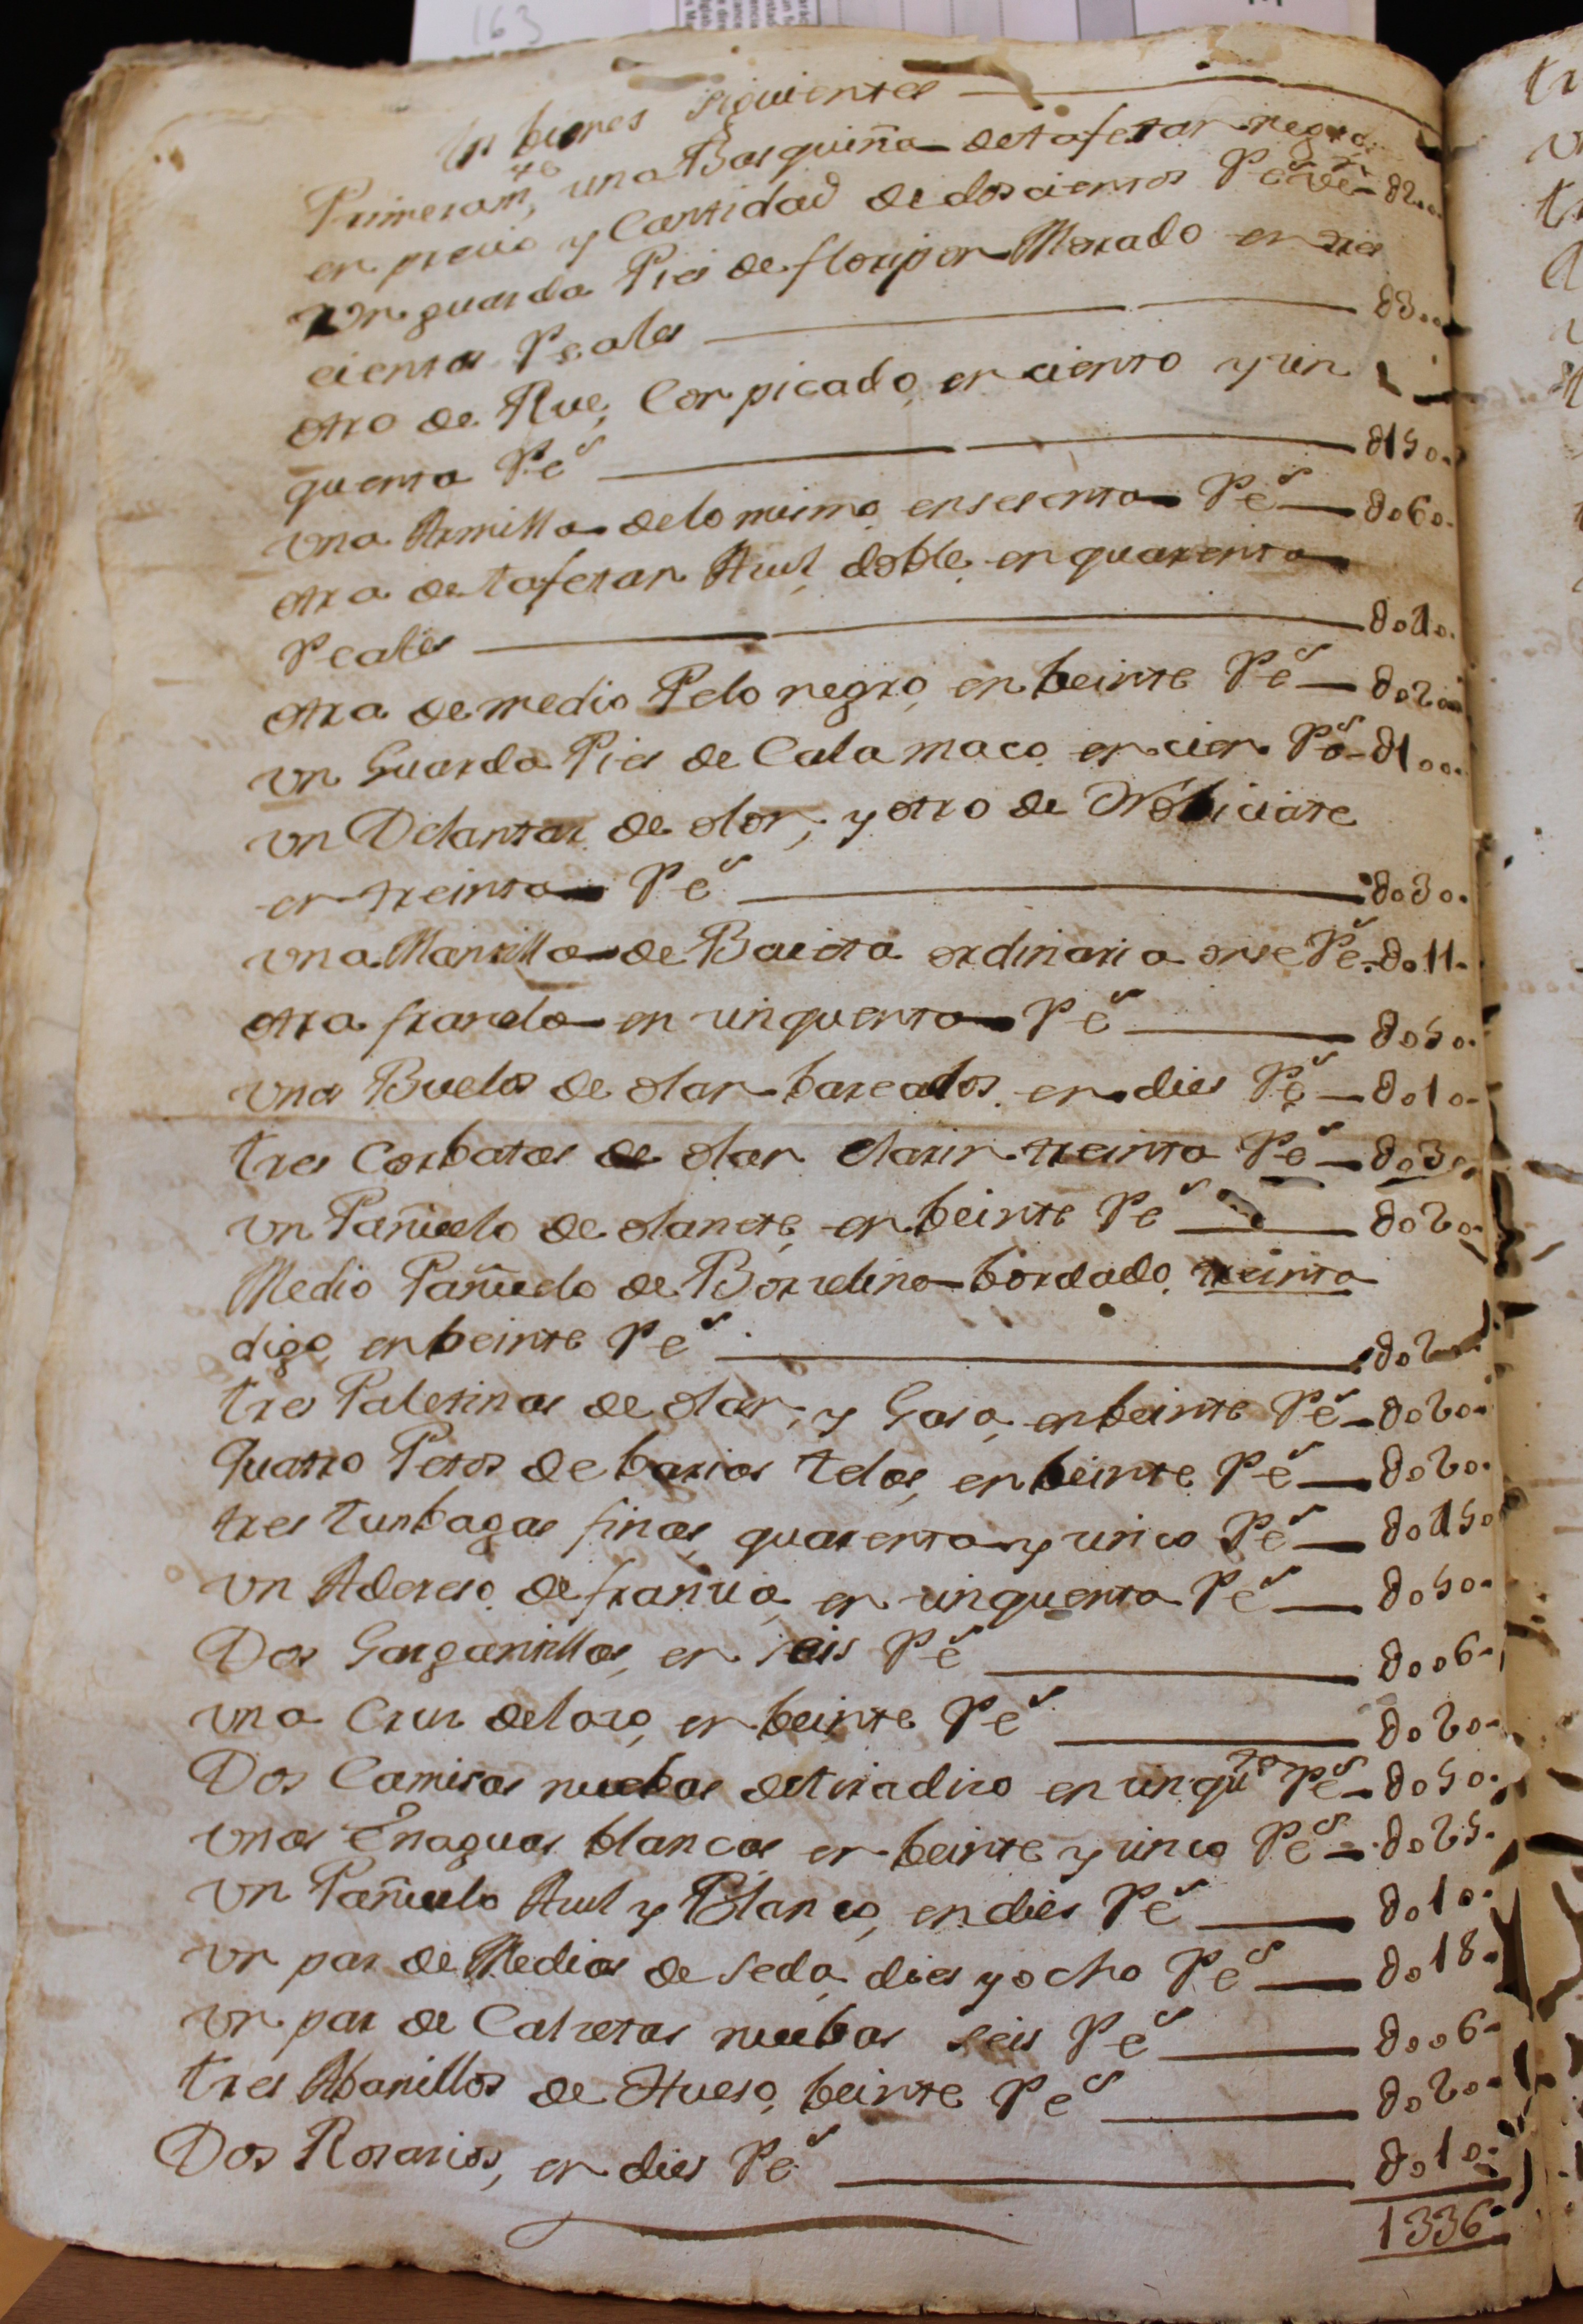 163
los bienes siguientes
Primeram.te, una Basquiña de tafetan negro,
en precio y Cantidad de doscientos Rs. vn. 0200.
Un guarda Pies de floripon Morado en tres
cientos Reales 0300.
otro de Rue, Con picado, en ciento y sin
quenta Rs. 0150.
Una Armilla de lo mismo en sesenta Rs. 0060.
otra de tafetan Azul, doble, en quarenta
Reales 0040.
otra de medio Pelo negro, en beinte Rs. 0020.
Un Guarda Pies de Calamaco, en cien Rs. 0100.
Un Delantar de olor, y otro de Nobiciate
en treinta Rs. 0030.
Una Mantilla de Baieta ordinaria onse Rs. 0011.
otra franela en cinquenta Rs. 0050.
Unos Buelos de olan bareados, en dies Rs. 0010.
tres Corbatas de olan clarin treinta Rs. 0030.
Un Pañuelo de olanete, en beinte Rs. 0020.
Medio Pañuelo de Borselina bordado, treinta
digo, en beinte Rs. 0020.
tres Paletinas de olan, y Gasa, en beinte Rs. 0020.
Quatro Petos de barias telas, en beinte Rs. 0020.
tres tunbagas finas, quarenta y cinco Rs. 0045.
Un Adereso de francia, en cinquenta Rs. 0050.
Dos Gargantillas, en seis Rs. 0006.
Una Crus de loro, en beinte Rs. 0020.
Dos Camisas nuebas de tiradiso en cinqu.ta Rs. 0050.
Unas Enaguas blancas en beinte y cinco Rs. 0025.
Un Pañuelo Azul y Blanco, en dies Rs. 0010.
Un par de Medias de Seda, dies y ocho Rs. 0018.
Un par de Calsetas nuebas seis Rs. 0006.
tres Abanillos de Hueso, beinte Rs. 0020.
Dos Rosarios, en dies Rs. 0010.
1336